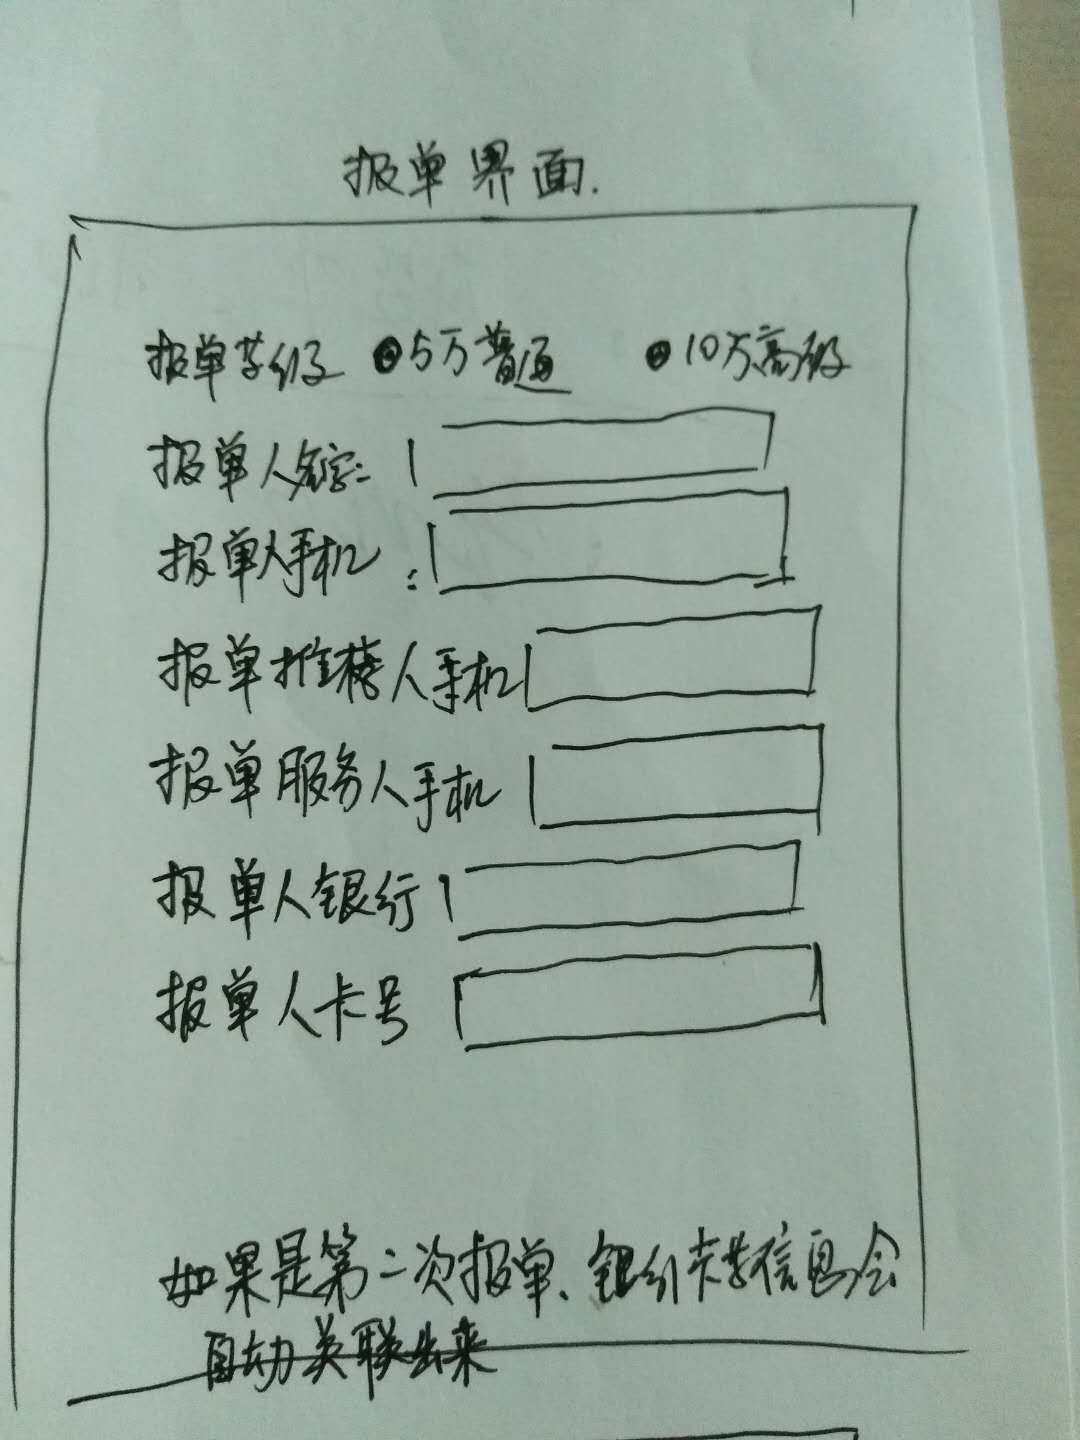 报单界面.
报单等级 5万普通 10万高级
报单人名字:
报单人手机:
报单推荐人手机
报单服务人手机
报单人银行
报单人卡号
如果是第二次报单、银行卡等信息会
自动关联出来